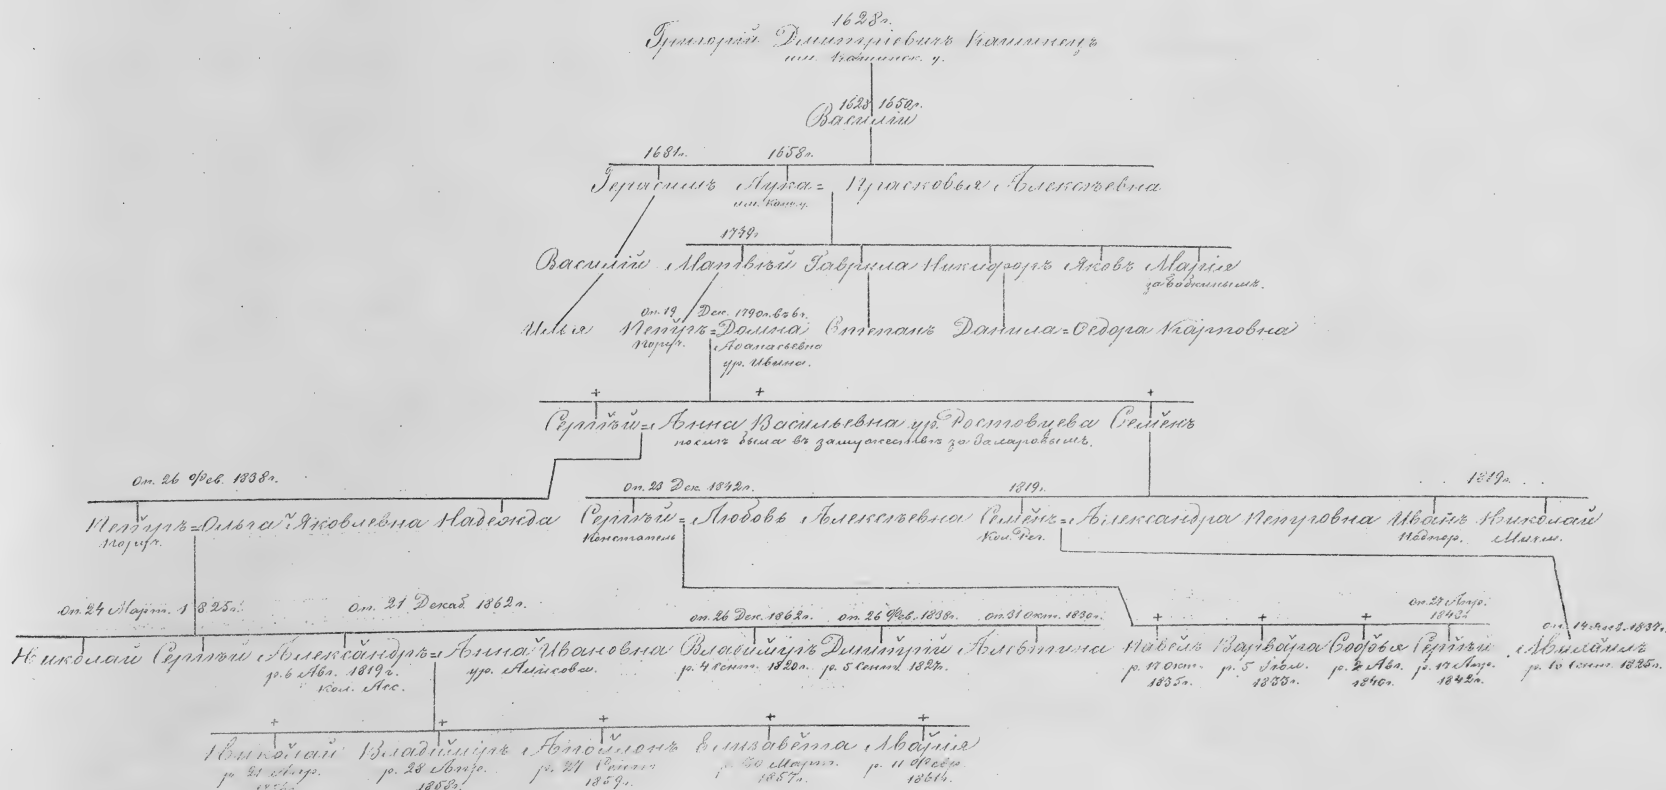 1628г.
Григорій Дмитріевичъ Кашинецъ
им. Кашинск. у.
1628 1650г.
Василій
1681г. 1658г.
Герасимъ Лука = Прасковья Алексѣевна
им. Каш. у.
1739г
Василій Матвѣй Гаврила Никифоръ Яковъ Марія
за Бабкинымъ.
оп. 19 Дек. 1790г. въ 6г.
Илья Петръ = Домна Степанъ Данила = Ѳедора Карповна
Поруч. Аѳанасьевна
ур. Ивина.
+ + +
Сергѣй = Анна Васильевна ур. Ростовцева Семёнъ
послѣ была въ замужествѣ за
оп. 26 Фев. 1838г. оп. 23 Дек. 1842г. 1819г. 1819г.
Петръ = Ольга Яковлевна Надежда Сергѣй = Любовь Алексѣевна Семёнъ = Александра Петровна Иванъ Николай
Поруч. Констапель Кол. Рег. Подпор. Мичм.
оп. 24 Март. 1825г. оп. 21 Декаб. 1862г. оп. 26 Дек. 1862г. оп. 26 Фев. 1838г. оп. 31 окт. 1830г. + + + оп. 27 Апр. 1843г.
Николай Сергѣй Александръ = Анна Ивановна Владиміръ Димитрій Алевтина Павелъ Варвара Софья Сергѣй Михаилъ
р. 6 Авг. 1819г. ур. р. 4 сент. 1820г. р. 5 сент. 1827г. р. 17 окт. р. 5 Іюл. р. 2 Авг. р. 17 Апр. р. 10 сент. 1825г.
Кол. Асс. 1835г. 1833г. 1840г. 1842г.
+ + + + +
Николай Владиміръ Аполлонъ Елизавета Марія
р. 21 Апр. р. 28 Апр. р. 27 Сент. р. 20 Март. р. 11 Февр.
1858г. 1859г. 1857г. 1861г.